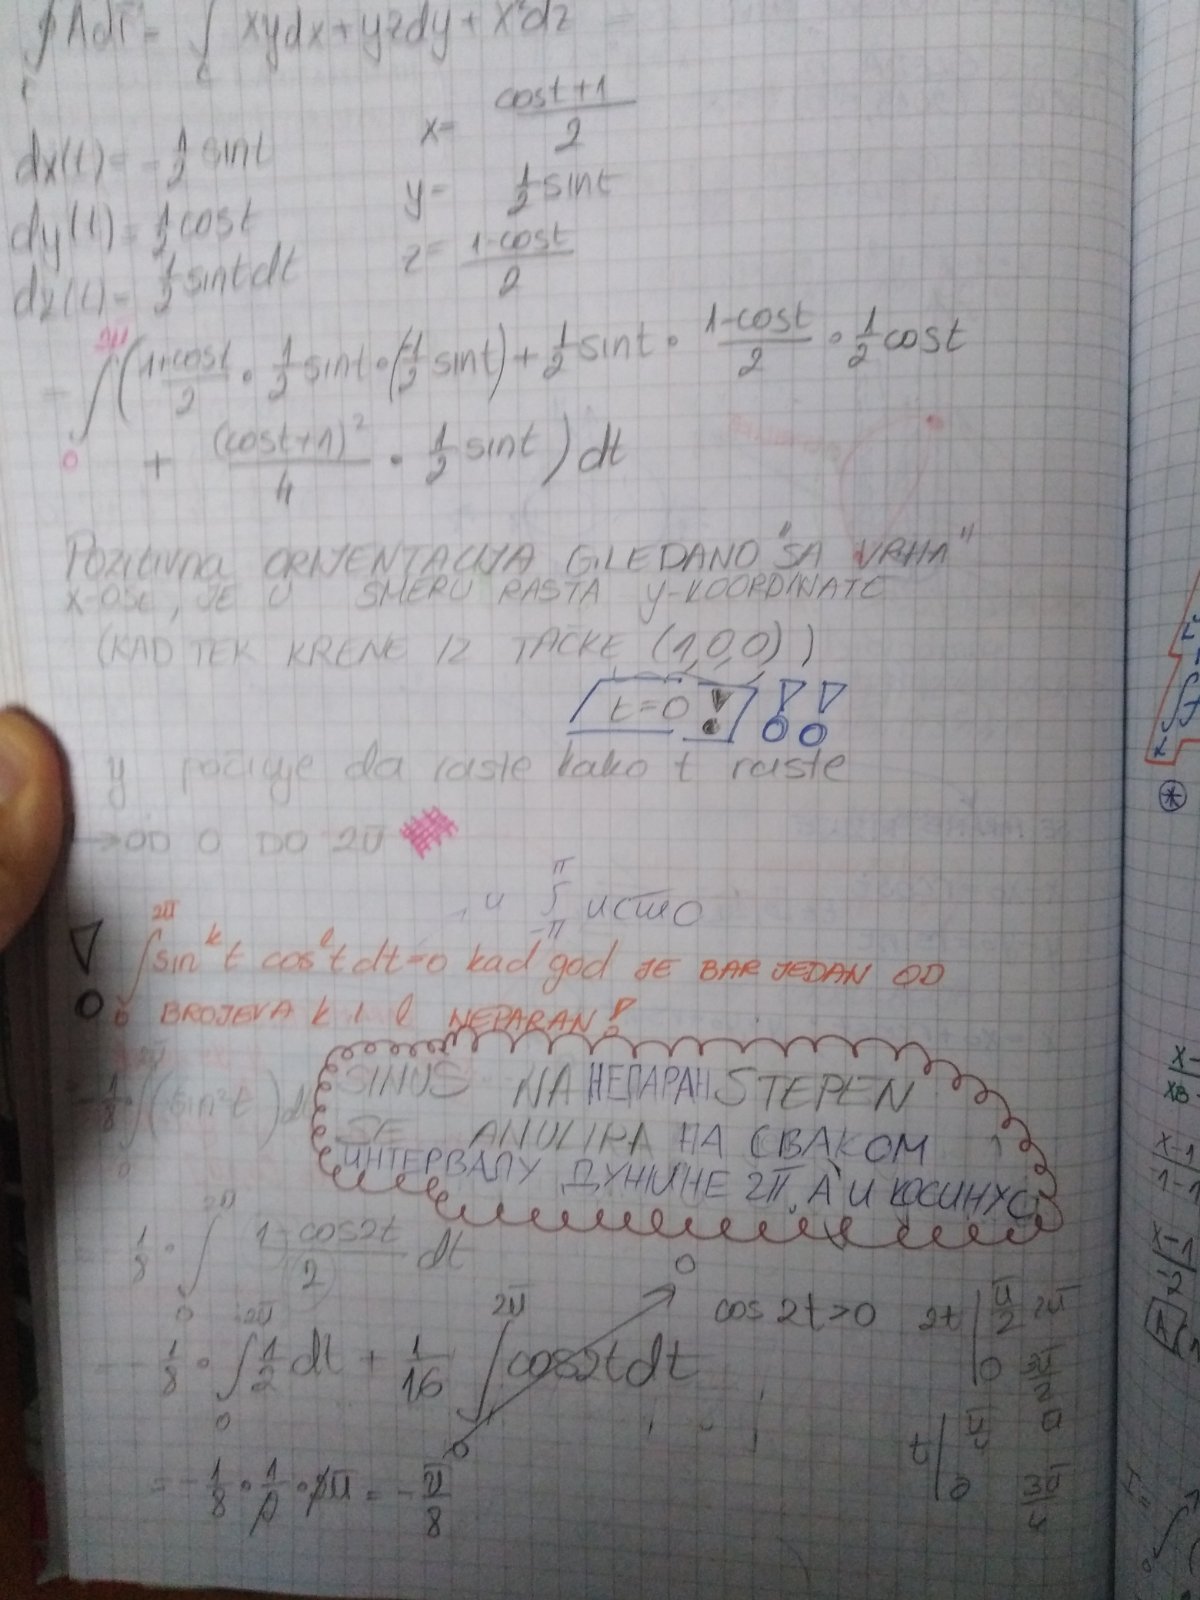 ∮ A dr = ∫ xydx + yzdy + x²dz
dx(t) = -1/2 sint
x = (cost+1)/2
dy(t) = 1/2 cost
y = 1/2 sint
dz(t) = 1/2 sint dt
z = (1-cost)/2
= ∫ 0 2π ( (1+cost)/2 · 1/2 sint · (-1/2 sint) + 1/2 sint · (1-cost)/2 · 1/2 cost
+ (cost+1)²/4 · 1/2 sint ) dt
Pozitivna ORIJENTACIJA GLEDANO "SA VRHA"
x-OSE, JE U SMERU RASTA y-KOORDINATE
(KAD TEK KRENE IZ TAČKE (1,0,0))
t=0 ! ! !
y počinje da raste kako t raste
→ OD 0 DO 2π
, и ∫ -π π исто
! ∫ 0 2π sin^k t cos^l t dt = 0 kad god JE BAR JEDAN OD
BROJEVA k i l NEPARAN!
-1/8 · ∫ 0 2π (sin²t) dt
SINUS NA НЕПАРАН STEPEN
SE ANULIRA НА СВАКОМ
ИНТЕРВАЛУ ДУЖИНЕ 2π, А И КОСИНУС
- 1/8 · ∫ 0 2π (1-cos2t)/2 dt
- 1/8 · ∫ 0 2π 1/2 dt + 1/16 ∫ 0 2π cos2t dt 0
cos 2t > 0
2t | π/2 2π
0 3π/2
t | π/4 π
0 3π/4
= -1/8 · 1/2 · 2π = -π/8